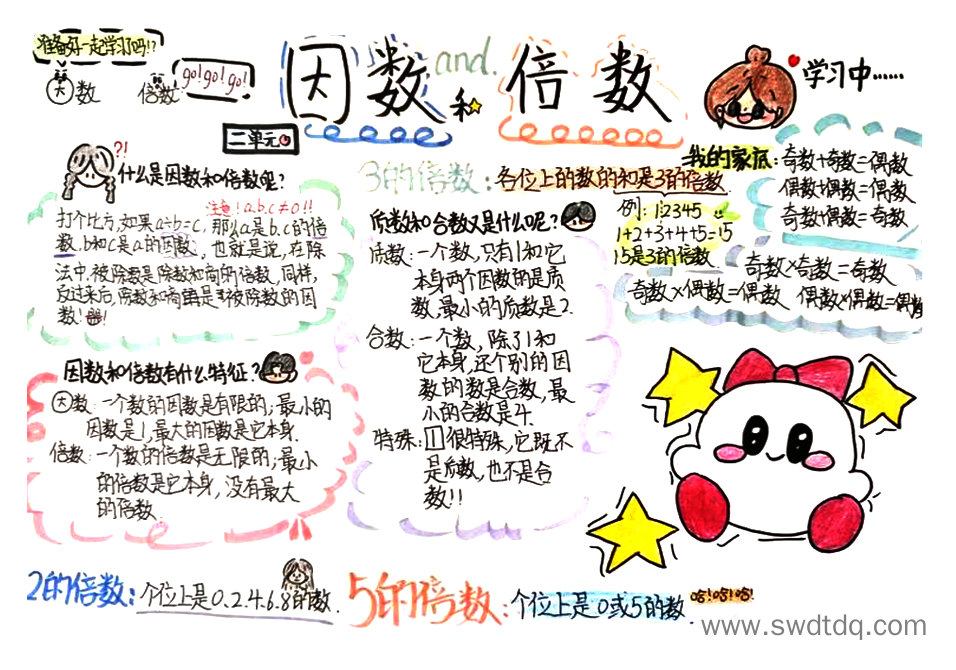 准备好一起学习了吗!?
因数 倍数
go!go!go!
因数and.和倍数
学习中……
二单元
?!
什么是因数和倍数呢?
注意!a.b.c≠0!!
打个比方,如果a÷b=c,那么a是b.c的倍
数.b和c是a的因数,也就是说,在除
法中,被除数是除数和商的倍数,同样,
反过来后,除数和商虽是被除数的因
数!
因数和倍数有什么特征?
因数:一个数的因数是有限的,最小的
因数是1,最大的因数是它本身.
倍数:一个数的倍数是无限的,最小
的倍数是它本身,没有最大
的倍数.
3的倍数:各位上的数的和是3的倍数.
质数和合数又是什么呢?
质数:一个数,只有1和它
本身两个因数的是质
数,最小的质数是2.
合数:一个数,除了1和
它本身,还个别的因
数的数是合数,最
小的合数是4.
特殊:1很特殊,它既不
是质数,也不是合
数!!
我的家底:
奇数+奇数=偶数
偶数+偶数=偶数
奇数+偶数=奇数
例:12345
1+2+3+4+5=15
15是3的倍数.
奇数×奇数=奇数
奇数×偶数=偶数 偶数×偶数=偶数
2的倍数:个位上是0.2.4.6.8的数.
5的倍数:个位上是0或5的数.
哈!哈!哈!
www.swdtdq.com